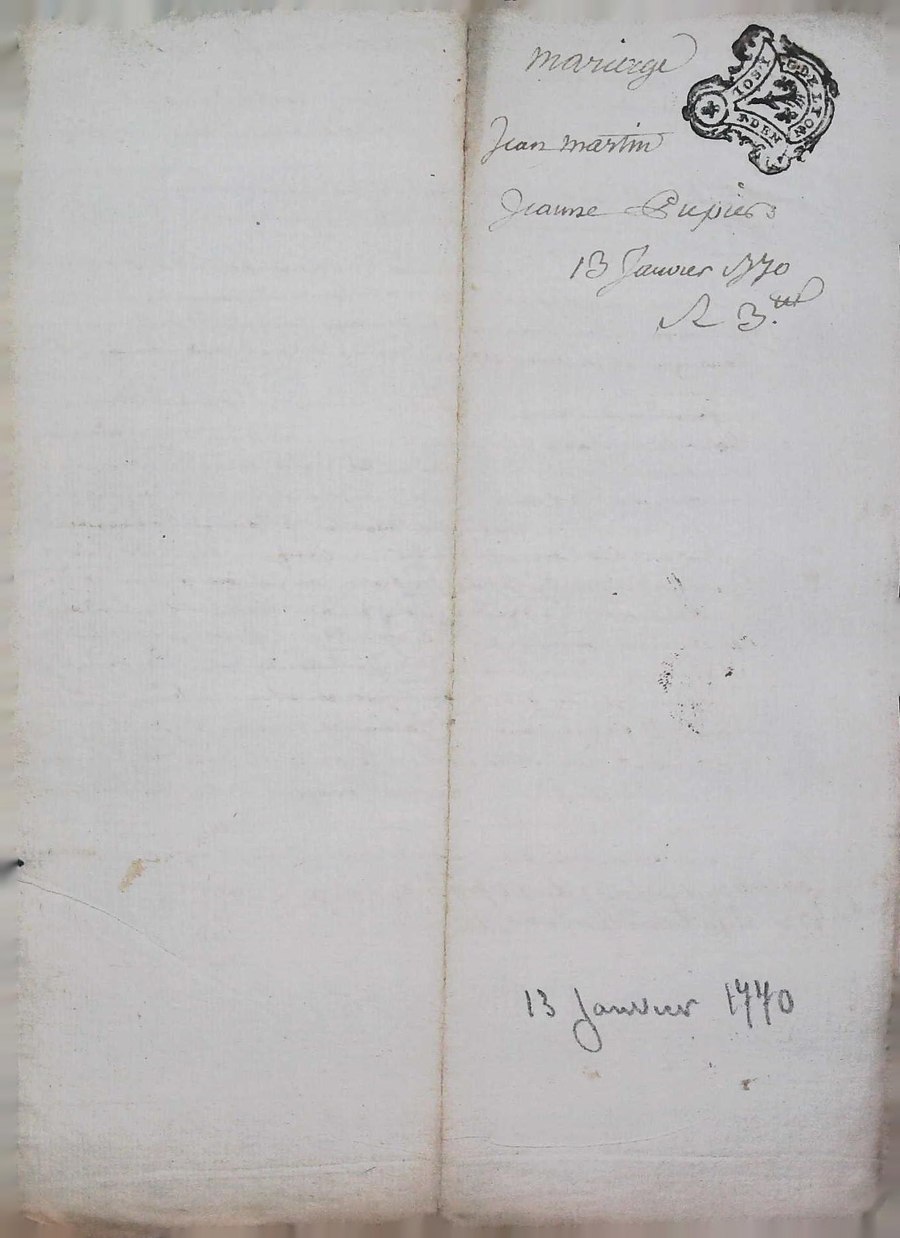 mariage
Jean martin
Jeanne Pupier
13 Janvier 1770
R 3.
G DE LYON
13 Janvier 1770